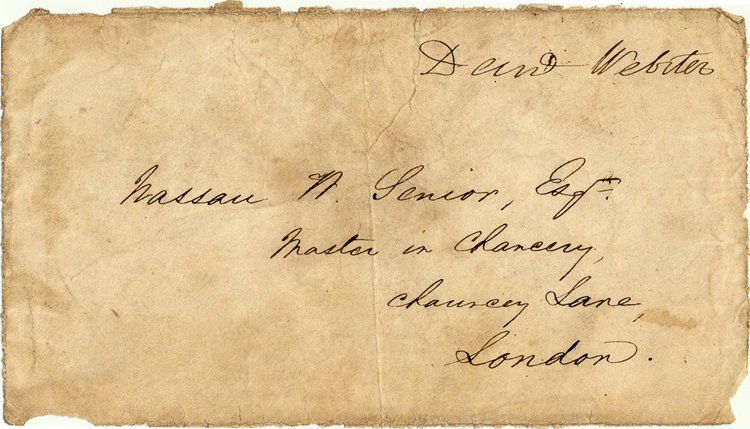 Danl Webster
Nassau W. Senior, Esqr.
Master in Chancery,
Chancey Lane,
London.